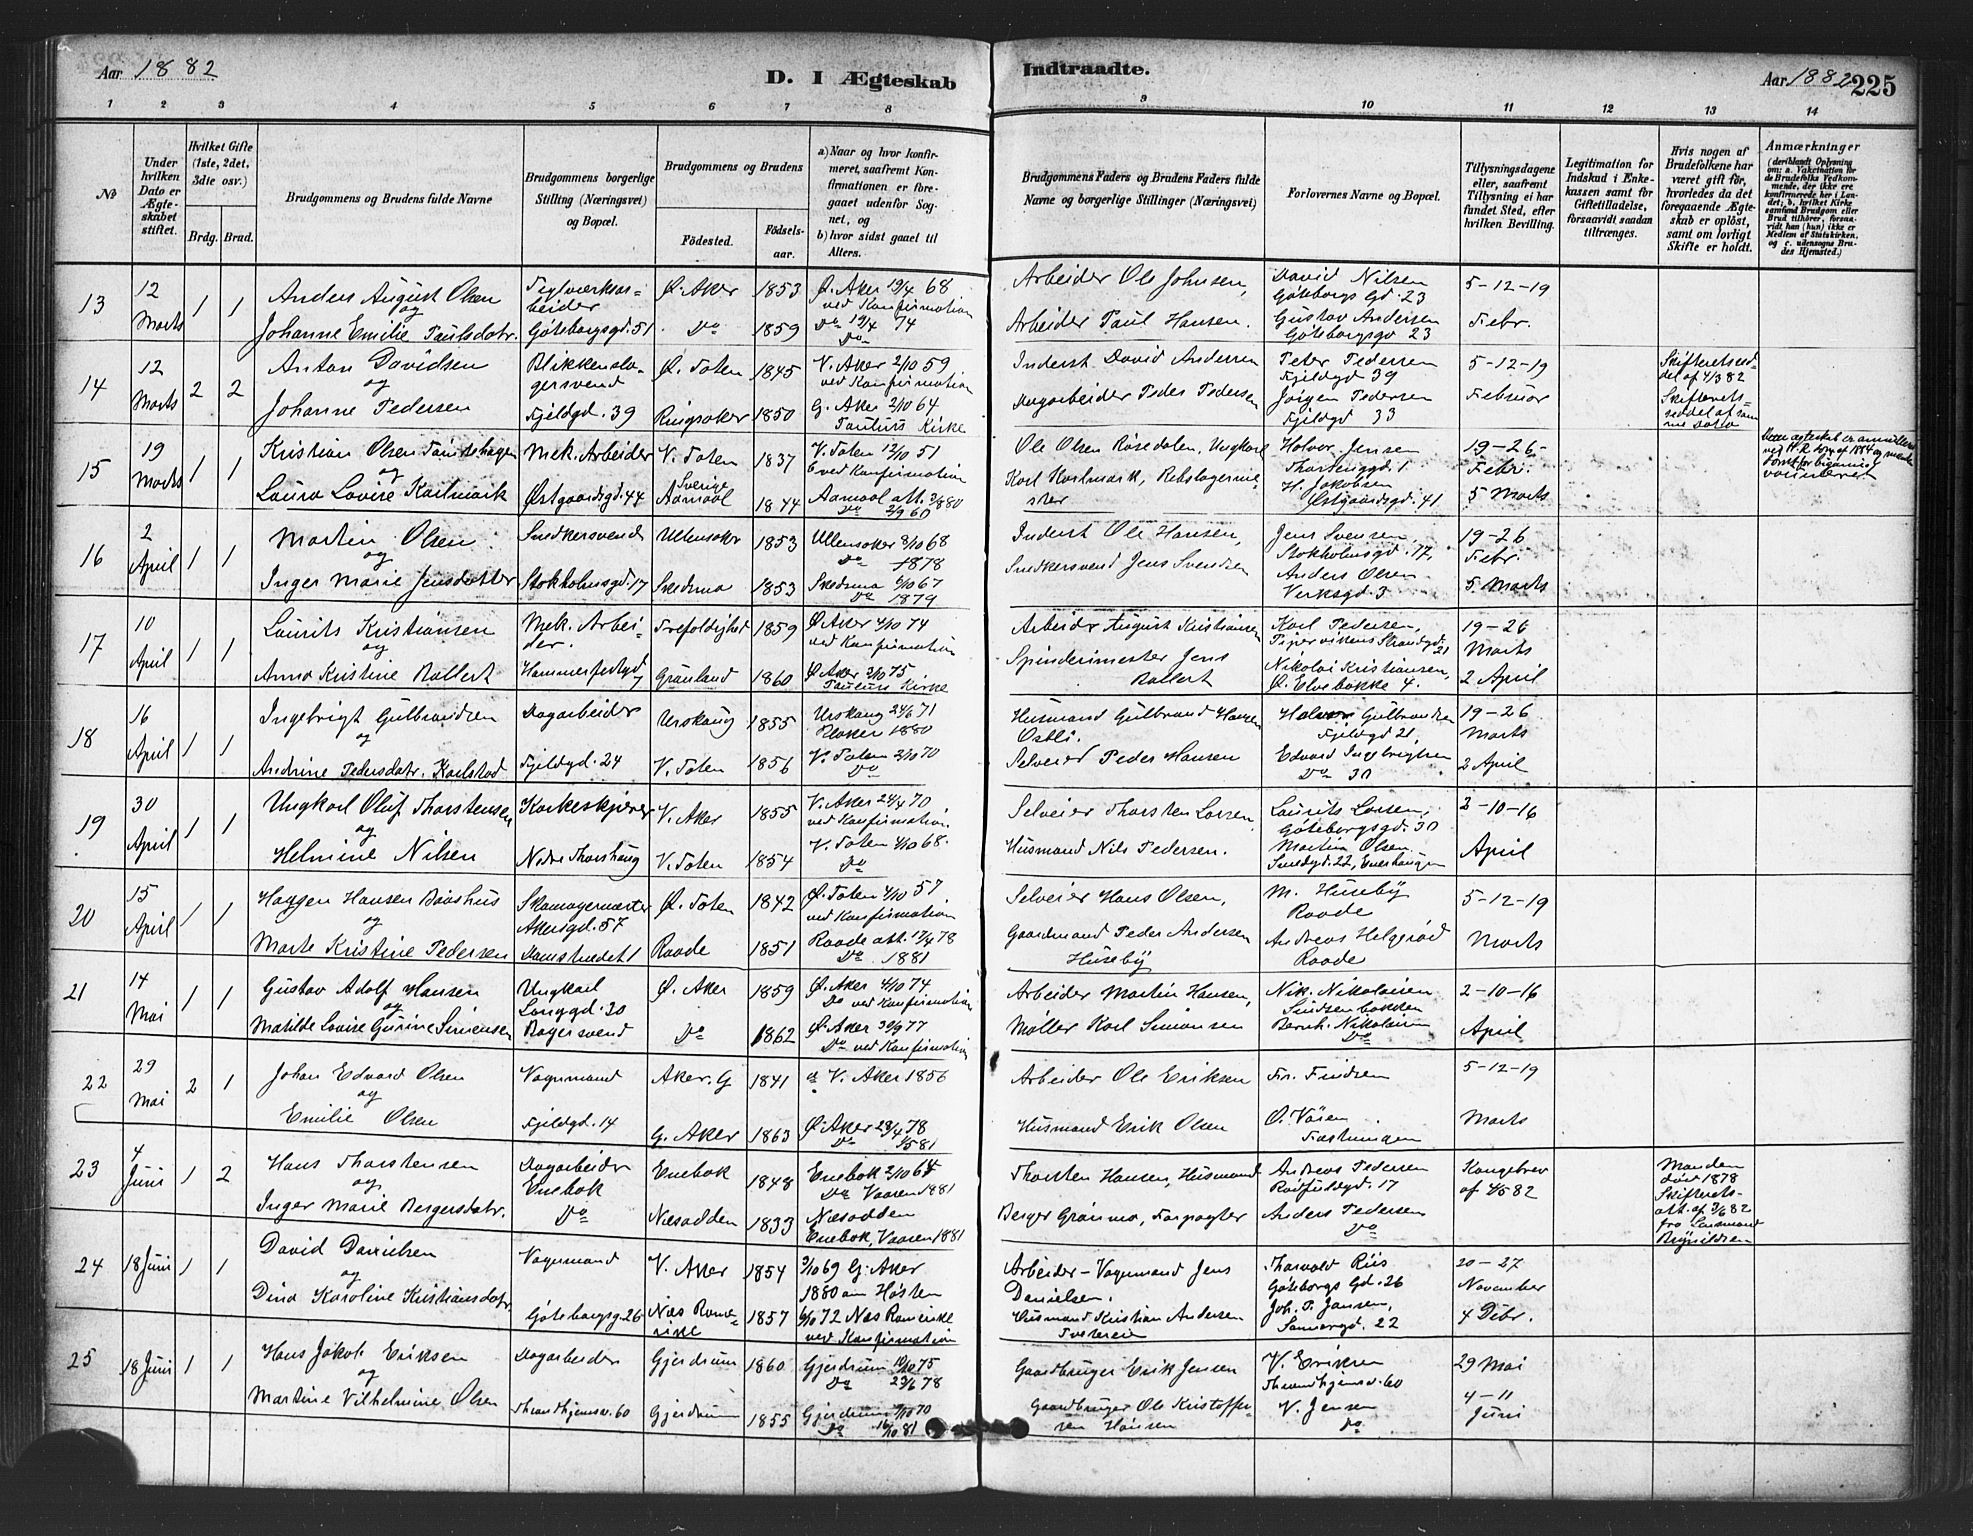 Aar 1882
D. I Ægteskab
Indtraadte.
Aar 1882 225
1 2 3 4 5 6 7 8 9 10 11 12 13 14
№
Under hvilken Dato er Ægteskabet stiftet.
Hvilket Gifte (1ste, 2det, 3die osv.)
Brdg. Brud.
Brudgommens og Brudens fulde Navne
Brudgommens borgerlige Stilling (Næringsvei) og Bopæl.
Brudgommens og Brudens
Fødested.
Fødselsaar.
a) Naar og hvor konfirmeret, saafremt Konfirmationen er foregaaet udenfor Sognet, og
b) hvor sidst gaaet til Alters.
Brudgommens Faders og Brudens Faders fulde Navne og borgerlige Stillinger (Næringsvei)
Forlovernes Navne og Bopæl.
Tillysningsdagene eller, saafremt Tillysning ei har fundet Sted, efter hvilken Bevilling.
Legitimation for Indskud i Enkekassen samt for Giftetilladelse, forsaavidt saadan tiltrænges.
Hvis nogen af Brudefolkene har været gift før, hvorledes da det foregaaende Ægteskab er opløst, samt om lovligt Skifte er holdt.
Anmærkninger
(deriblandt Oplysning om: a. Vakcination for de Brudefolks Vedkommende, der ikke ere konfirmerede her i Landet; b. hvilket Kirkesamfund Brudgom eller Brud tilhører, forsaavidt han (hun) ikke er Medlem af Statskirken, og c. udensogns Brudes Hjemsted.)
13 12 Marts 1 1 Anders August Olsen Teglværksarbeider Ø. Aker 1853 Ø. Aker 19/4 68 ved Konfirmation Arbeider Ole Johnsen, David Nilsen Göteborgs Gd. 23 5-12-19
og
Johanne Emilie Paulsdatr. Göteborgsgd. 51 Do 1859 Do 19/4 74 Do Arbeider Paul Hansen. Gustav Andersen Göteborgsgd 23 Febr.
14 12 Marts 2 2 Anton Davidsen Blikkenslagersvend Ø. Toten 1845 V. Aker 2/10 59 ved Konfirmation Inderst David Andersen Peter Pedersen Fjeldgd 39 5-12-19 Skifteretsseddel af 4/3 82
og
Johanne Pedersen Fjeldgd. 39 Ringsaker 1850 G. Aker 2/10 64 Paulus Kirke Dagarbeider Peder Pedersen Jörgen Pedersen Fjeldgd 33 Februar Skifteretsseddel af samme Dato
15 19 Marts 1 1 Kristian Olsen Mek. Arbeider V. Toten 1837 V. Toten 12/10 51 ved Konfirmation Ole Olsen Rosedalen, Ungkarl Halvor Jensen Thorbenggd. 1 19-26 Febr.
og
Laura Lovise Karlmark Östgaardsgd. 44 Sverige Aamaal 1844 Aamaal att. Do 2/9 60 Karl Karlmark, Rebslagermester H. Jakobsen Østgaardsgd. 41 5 Marts
16 2 April 1 1 Martin Olsen Snedkersvend Ullensaker 1853 Ullensaker 8/10 68 Do 1878 Inderst Ole Hansen, Jens Svensen, Stokholmsgd. 17, 19-26 Febr.
og
Inger Marie Jensdatter Stokholmsgd. 17 Skedsmo 1853 Skedsmo 6/10 67 Do 1879 Snedkersvend Jens Svendsen Anders Olsen Verksgd. 3 5 Marts
17 10 April 1 1 Laurits Kristiansen Mek. Arbeider. Trefoldighed 1859 Ø. Aker 4/10 74 ved Konfirmation Arbeider August Kristiansen Karl Pedersen, Pipervikens Strandgd. 21 19-26 Marts
og
Anna Kristine Ballert Hammerfestgd 7 Grønland 1860 Ø. Aker 3/10 75 Paulus Kirke Spinderimester Jens Ballert Nikolai Kristiansen, Ø. Elvebakke 4. 2 April
18 16 April 1 1 Ingebrigt Gulbrandsen Dagarbeider Urskoug 1855 Urskoug 24/6 71 1880 Husmand Gulbrand Hansen Ostli. Halvor Gulbrandsen Fjeldgd 21, 19-26 Marts
og
Andrine Pedersdatr. Karlstad Fjeldgd. 24 V. Toten 1856 V. Toten 2/10 70 Do Selveier Peder Hansen Edvard Ingebrigtsen Do 30 2 April
19 30 April 1 1 Ungkarl Oluf Thorstensen Korkeskjærer V. Aker 1855 V. Aker 24/4 70 ved Konfirmation. Selveier Thorsten Larsen, Laurits Larsen, Göteborgsgd. 30 2-10-16
og
Helmine Nilsen Nedre Thorshaug V. Toten 1854 V. Toten 4/10 68. Do Husmand Nils Pedersen. Martin Olsen. Smedgd. 22, Enerhaugen April
20 15 April 1 1 Haagen Hansen Baashus Skomagermester Akersgd. 57 Ø. Toten 1842 Ø. Toten 4/10 57 ved Konfirmation Selveier Hans Olsen, M. Huseby Raade 5-12-19
og
Marte Kristine Pedersen Damstrædet 1 Raade 1851 Raade att. 17/4 78 Do 1881 Gaardmand Peder Andersen Huseby Andreas Helgerød Raade Marts
21 14 Mai 1 1 Gustav Adolf Hansen Ungkarl Langgd. 30 Ø. Aker 1859 Ø. Aker 4/10 74 Do ved Konfirmation Arbeider Martin Hansen, Nik. Nikolaisen 2-10-16
og
Matilde Lovise Gurine Simensen Bagersvend Do 1862 Ø. Aker 30/9 77 Do ved Konfirmation Møller Karl Simonsen Bernh. Nikolaisen Do April
22 29 Mai 2 1 Johan Edvard Olsen Vognmand Aker. G 1841 V. Aker 1856 Arbeider Ole Eriksen Fr. Findsen 5-12-19
og
Emilie Olsen Fjeldgd. 14 G. Aker 1863 Ø. Aker 28/4 78 Do 1/5 81 Husmand Erik Olsen O. Fæstningen Marts
23 4 Juni 1 2 Hans Thorstensen Dagarbeider Enebak Enebak 1848 Enebak 2/10 64 Do Vaaren 1881 Thorsten Hansen, Husmand Andreas Pedersen Rødfyldgd. 17 Kongebrev af 4/5 82 Manden död 1878 Skifteretsatt. af 2/6 82 fra Lensmand
og
Inger Marie Bergersdatr. Do Næsodden 1833 Næsodden Enebak, Vaaren 1881 Berger Grønmo, Forpagter Anders Pedersen Do
24 18 Juni 1 1 David Danielsen Vognmand V. Aker 1854 3/10 69 G. Aker 1880 om Høsten Arbeider-Vognmand Jens Danielsen. Thorvald Riis Göteborgs Gd. 26 20-27 November
og
Dina Karoline Kristiansdatr. Göteborgsg. 26 Næs Romerike 1857 6/10 72 Næs Romerike ved Konfirmation Husmand Kristian Andersen Joh. P. Jansen, Sannergd. 22 4 Debr.
25 18 Juni 1 1 Hans Jakob Eriksen Dagarbeider Gjerdrum 1860 Gjerdrum 10/10 75 Do 23/6 78 Gaardbruger Erik Jensen V. Eriksen Throndhjemsv. 60 29 Mai
og
Martine Vilhelmine Olsen Throndhjemsv. 60 Gjerdrum 1855 Gjerdrum 2/10 70 Do 16/10 81 Gaardbruger Ole Kristoffersen Hansen V. Jensen Do 4-11 Juni